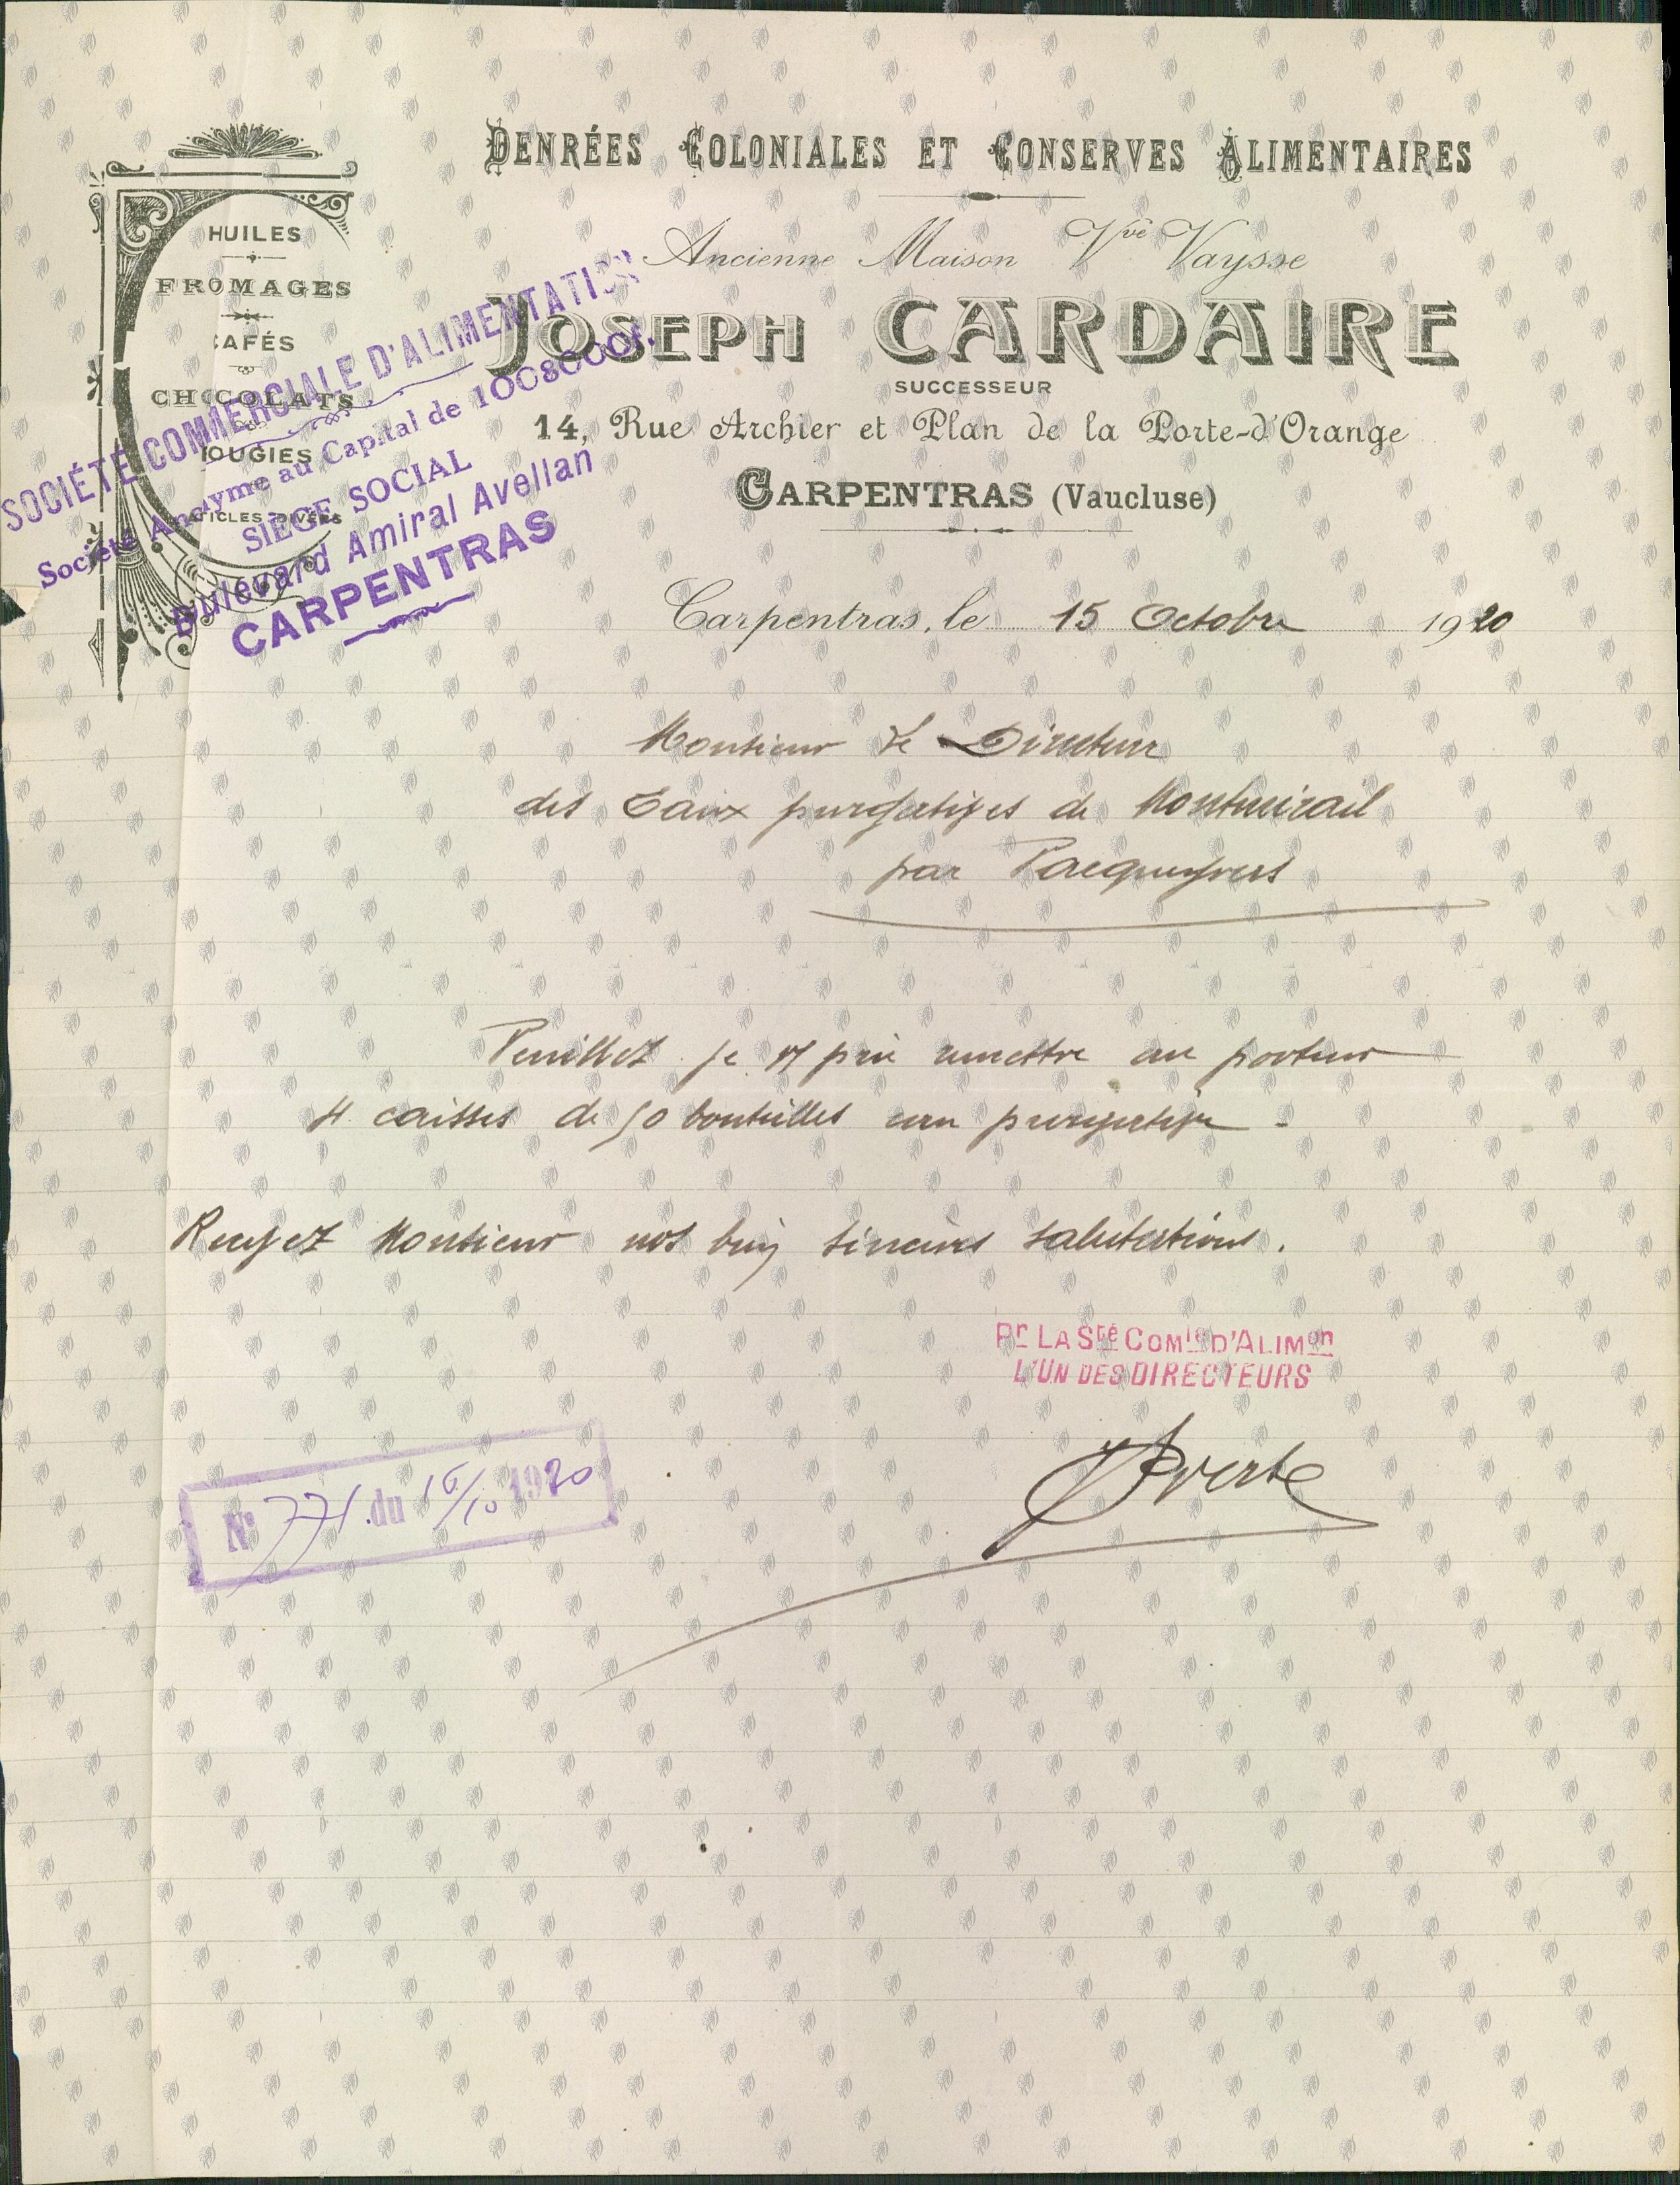 DENRÉES COLONIALES ET CONSERVES ALIMENTAIRES
Ancienne Maison Vve Vaysse
JOSEPH CARDAIRE
SUCCESSEUR
14, Rue Archier et Plan de la Porte-d'Orange
CARPENTRAS (Vaucluse)
HUILES
FROMAGES
CAFÉS
CHOCOLATS
BOUGIES
ARTICLES DIVERS
SOCIÉTÉ COMMERCIALE D'ALIMENTATION
Société Anonyme au Capital de
SIÈGE SOCIAL
Boulevard Amiral Avellan
CARPENTRAS
Carpentras, le 15 Octobre 1920
Monsieur Le Directeur
des Eaux purgatives de Montmirail
par Vacqueyras
Veuillez je vs prie remettre au porteur
4 caisses de 50 bouteilles eau purgative -
Recevez Monsieur nos bien sincères salutations.
Pr LA Sté COMle D'ALIMon
L'UN DES DIRECTEURS
N° 771 du 16/10 1920